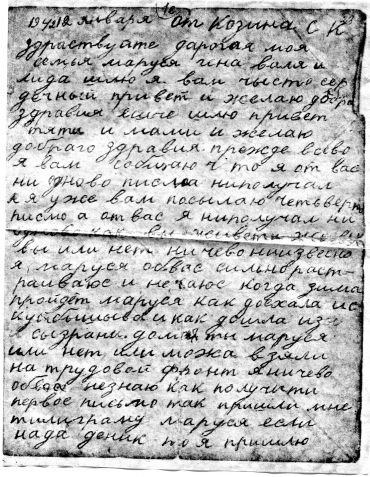 1942 12 января от Козина С К
здраствуите дарогая моя
семья маруся гена валя и
лида шлю я вам чысто сер
дечный привет и желаю добра
здравия есче шлю привет
тяти и мами и желаю
добраго здравия прежде всево
я вам собчаю что я от вас
ни одново писма ниполучал
а я уже вам посылаю четьверто
писмо а от вас я ниполучал ни
вы живети живы
вы или нет ничево ниизвесно
я маруся обвас сильно раст-
раиваюс и нечаюс когда зима
пройдет маруся как доехала ис
куйбышыва и как дошла из
сызрани домой ти маруся
или нет или можа взяли
на трудовой фронт я ничево
обвас незнаю как получити
первое письмо так пришли мне
тилиграму маруся если
нада деник то я пришлю